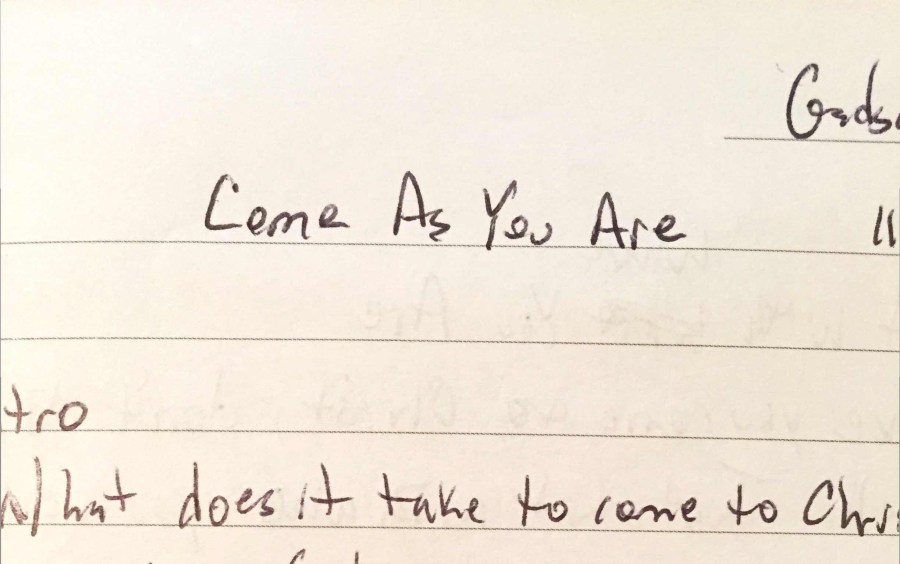 Gads
Come As You Are 11
tro
What does it take to come to Chris